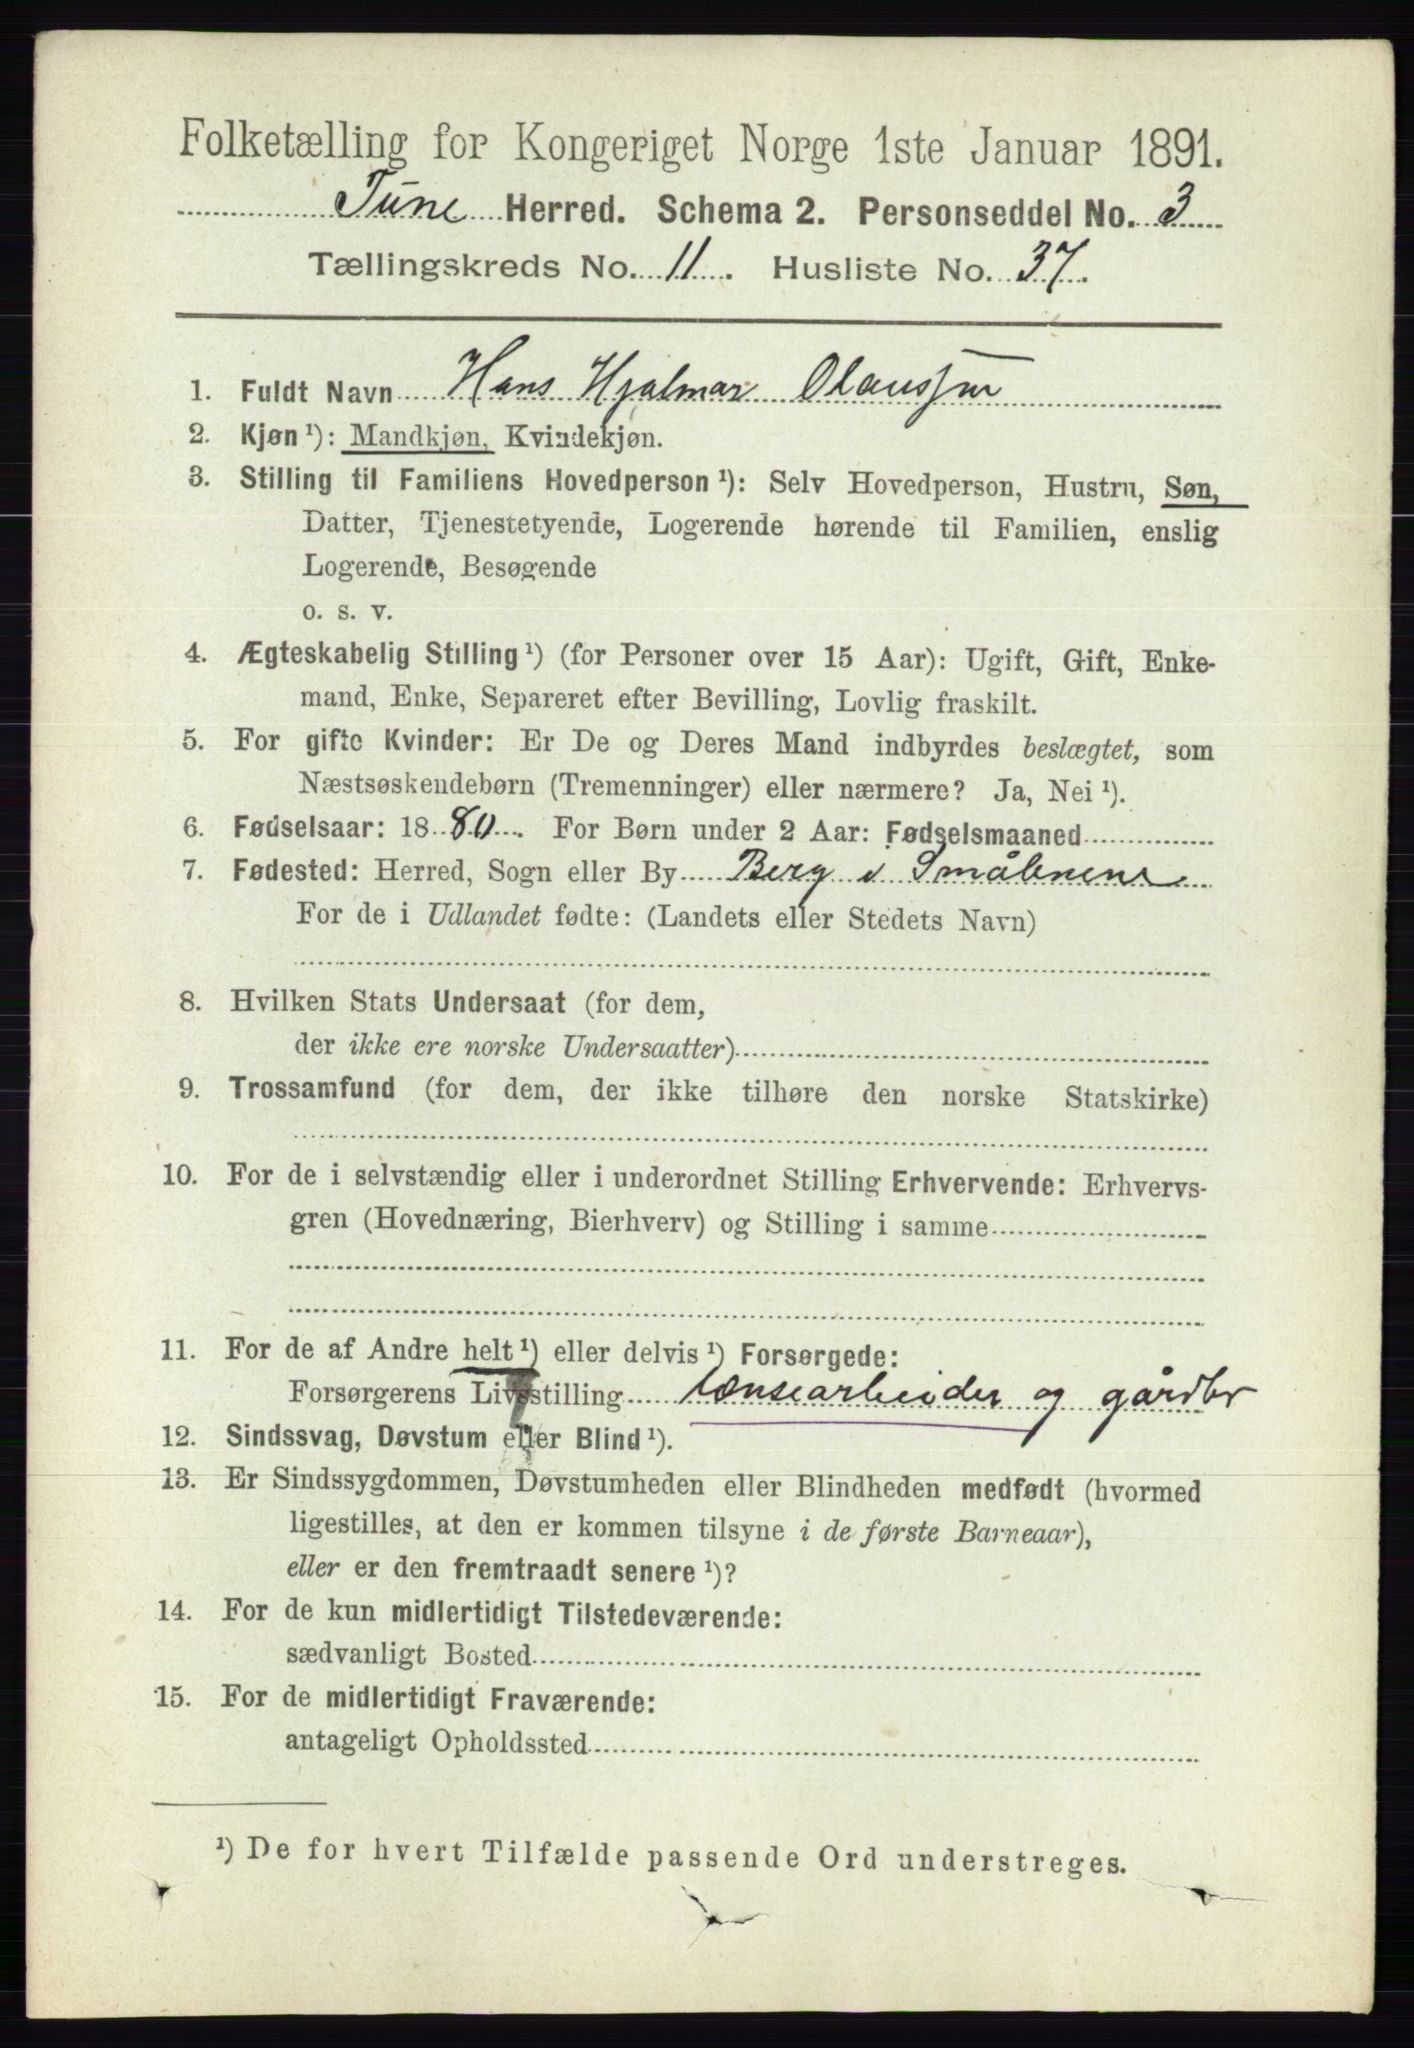 Folketælling for Kongeriget Norge 1ste Januar 1891.
Tune Herred. Schema 2. Personseddel No. 3
Tællingskreds No. 11. Husliste No. 37.
1. Fuldt Navn Hans Hjalmar Olaussen
2. Kjøn ¹): Mandkjøn, Kvindekjøn.
3. Stilling til Familiens Hovedperson ¹): Selv Hovedperson, Hustru, Søn,
Datter, Tjenestetyende, Logerende hørende til Familien, enslig
Logerende, Besøgende
o. s. v.
4. Ægteskabelig Stilling ¹) (for Personer over 15 Aar): Ugift, Gift, Enke-
mand, Enke, Separeret efter Bevilling, Lovlig fraskilt.
5. For gifte Kvinder: Er De og Deres Mand indbyrdes beslægtet, som
Næstsøskendebørn (Tremenninger) eller nærmere? Ja, Nei ¹).
6. Fødselsaar: 1880. For Børn under 2 Aar: Fødselsmaaned
7. Fødested: Herred, Sogn eller By Berg i Smålenene
For de i Udlandet fødte: (Landets eller Stedets Navn)
8. Hvilken Stats Undersaat (for dem,
der ikke ere norske Undersaatter)
9. Trossamfund (for dem, der ikke tilhøre den norske Statskirke)
10. For de i selvstændig eller i underordnet Stilling Erhvervende: Erhvervs-
gren (Hovednæring, Bierhverv) og Stilling i samme
11. For de af Andre helt ¹) eller delvis ¹) Forsørgede:
Forsørgerens Livsstilling lænsearbeider og gårdbr
12. Sindssvag, Døvstum eller Blind ¹).
13. Er Sindssygdommen, Døvstumheden eller Blindheden medfødt (hvormed
ligestilles, at den er kommen tilsyne i de første Barneaar),
eller er den fremtraadt senere ¹)?
14. For de kun midlertidigt Tilstedeværende:
sædvanligt Bosted
15. For de midlertidigt Fraværende:
antageligt Opholdssted
¹) De for hvert Tilfælde passende Ord understreges.